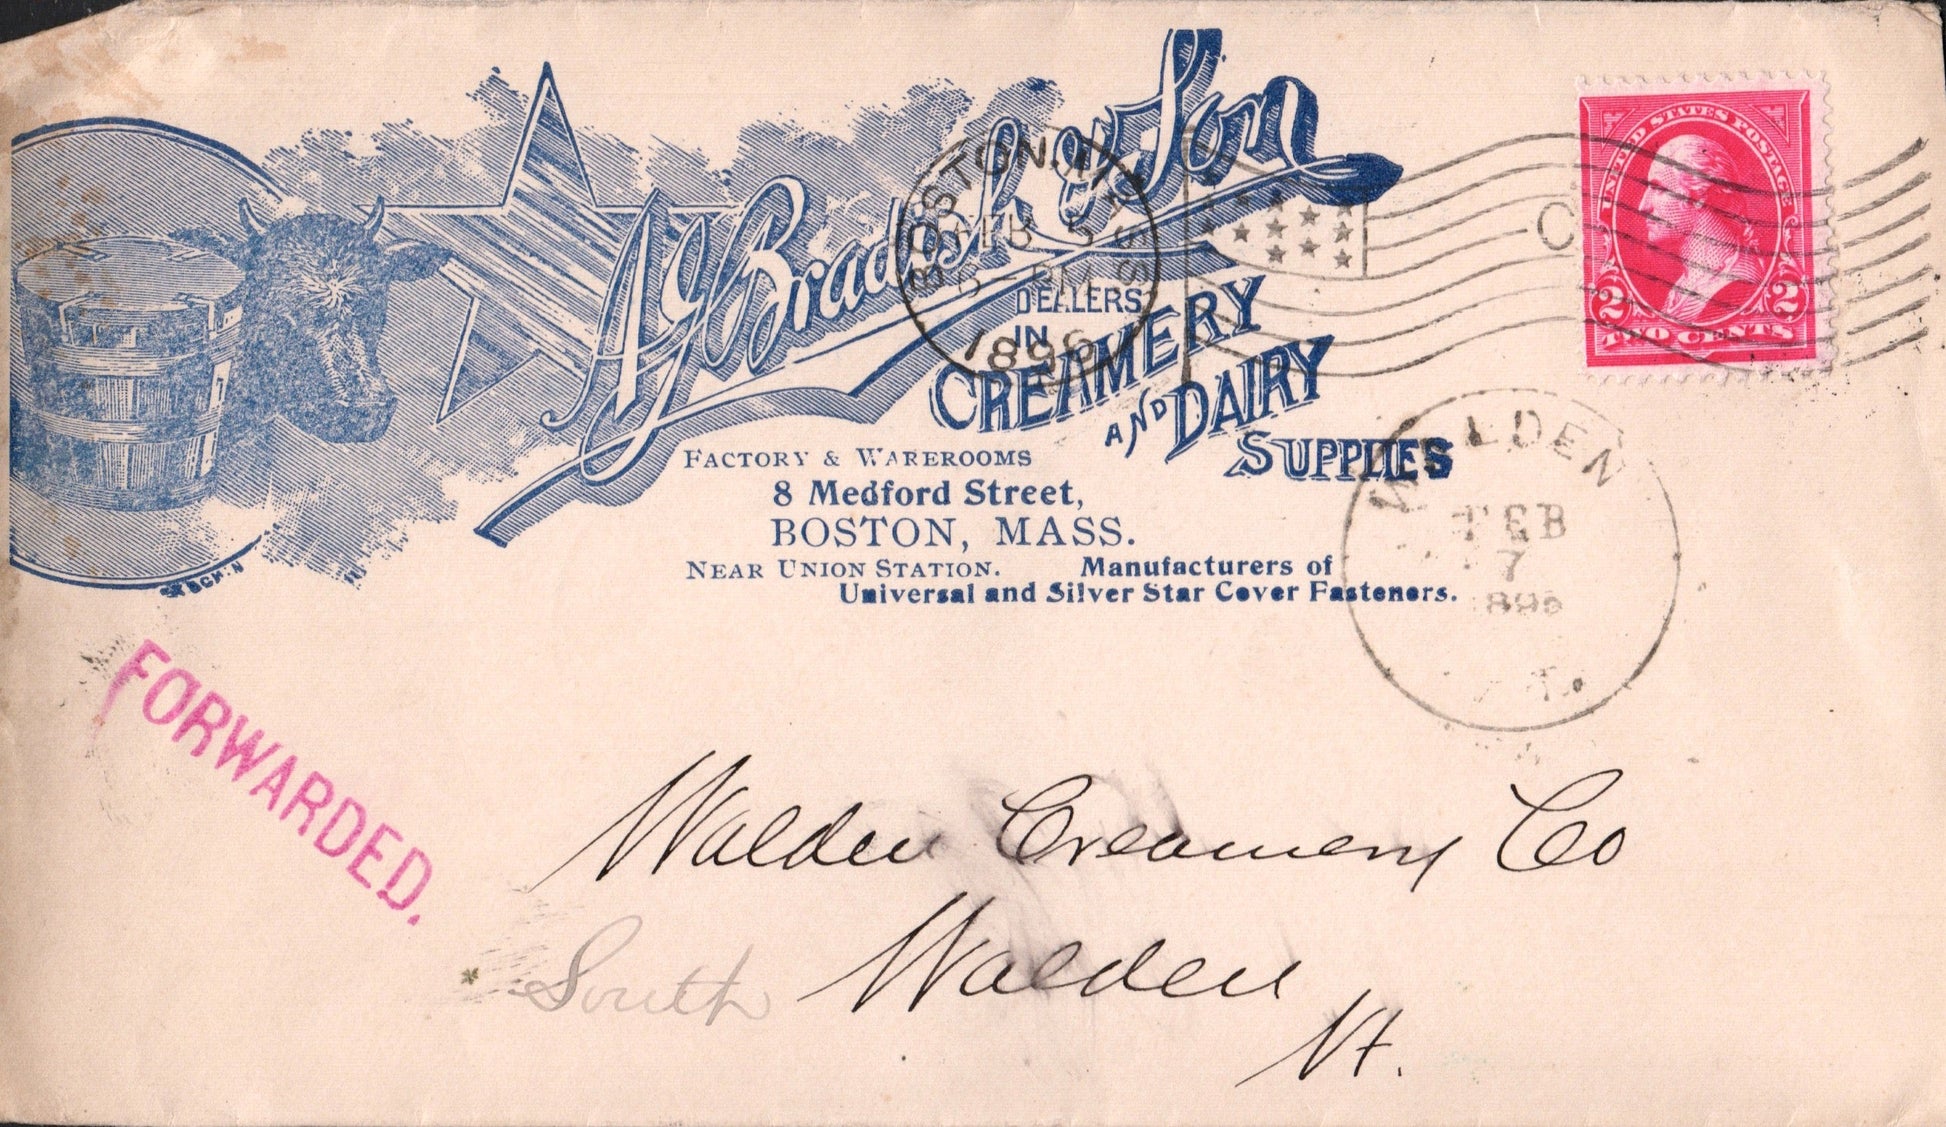 A G Bradish & Son
DEALERS
IN
CREAMERY
AND DAIRY
SUPPLIES
FACTORY & WAREROOMS
8 Medford Street,
BOSTON, MASS.
NEAR UNION STATION. Manufacturers of
Universal and Silver Star Cover Fasteners.
BOSTON. MASS.
FEB 5
6 PM
1896
C
UNITED STATES POSTAGE
2 2
TWO CENTS
WALDEN
FEB
7
FORWARDED.
Walden Creamery Co
South Walden
Vt.